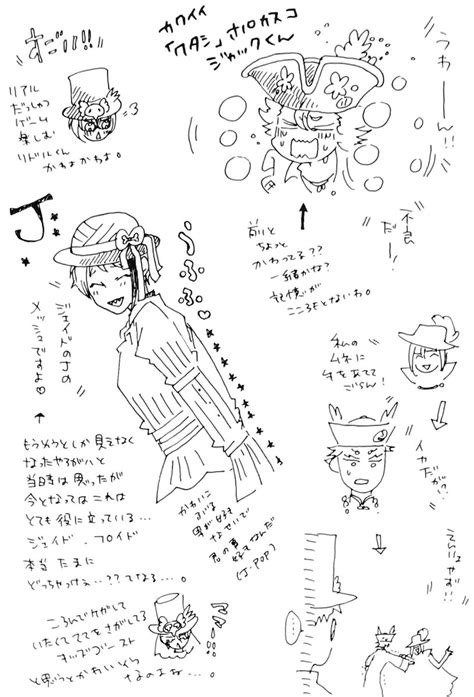 すごい!!
リアル
だっしゅつ
ゲーム
楽しむ
リドルくん
かわよかわよ。
カワイイ
「ワタシ」ナポカスコ
ジャックくん
うわーーん!!
前と
ちょっと
かわってる??
一緒かな?
記憶が
こころもとないわ。
不良
だー!
J
うふふ♡
ジェイドのJの
メッシュですよ♡
もうめうとしか見えなく
なったやろがいと
当時は思ったが
今となってはこれは
とても役に立っている…
ジェイド・フロイド
本当たまに
どっちやっけぇ…??てなる…。
かわいこ
ぶる
男が好き
なせいで
君の事
好きなんだ
(J-POP)
私の
ムネに
手をあてて
ごらん!
イカ
だが?
えんりょ
やす!!
ころんでケガして
いたくててをさがしてる
オッズゴースト
と思うとかわいそう
なのよな…。